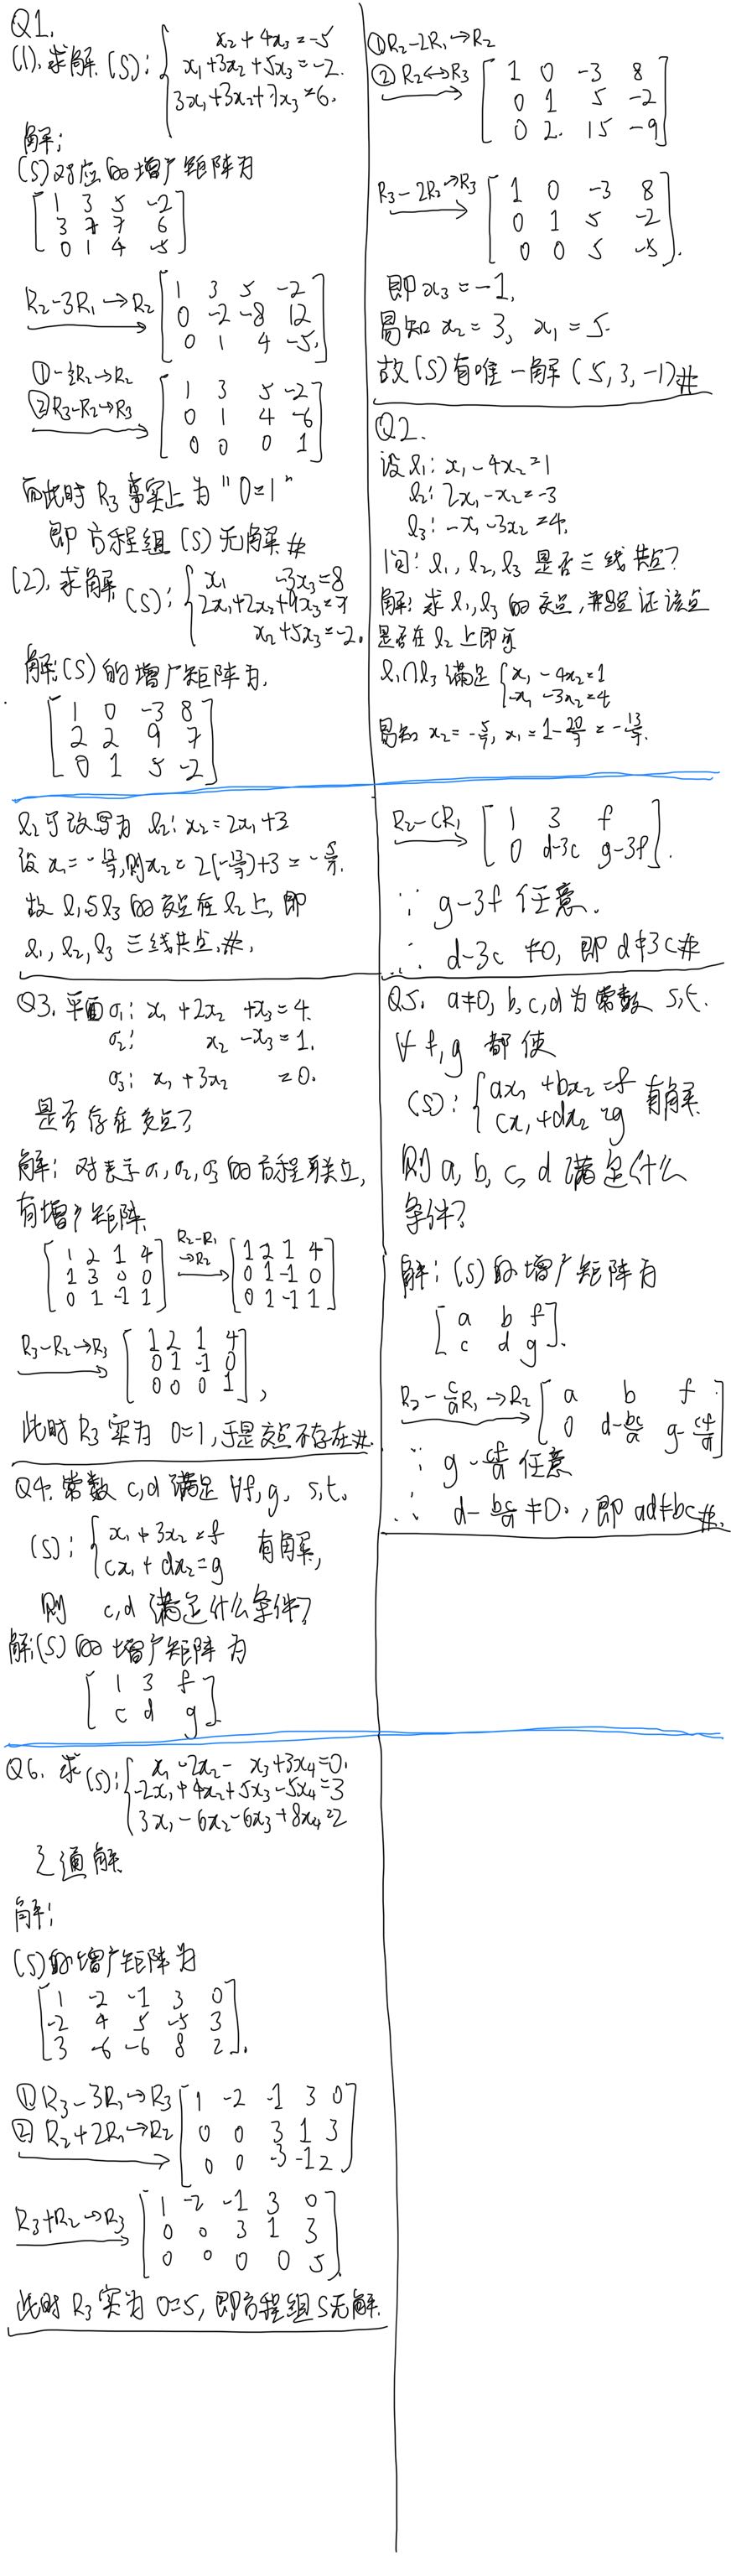 Q1.
(1). 求解 (S): { x₂ + 4x₃ = -5
x₁ + 3x₂ + 5x₃ = -2.
3x₁ + 3x₂ + 7x₃ = 6.
解:
(S)对应的增广矩阵为
[ 1 3 5 -2
3 7 7 6
0 1 4 -5 ]
R₂-3R₁→R₂ [ 1 3 5 -2
0 -2 -8 12
0 1 4 -5. ]
①-½R₂→R₂
②R₃-R₂→R₃ [ 1 3 5 -2
0 1 4 -6
0 0 0 1 ]
而此时 R₃ 事实上为 "0=1"
即方程组 (S) 无解 #
(2). 求解 (S): { x₁ -3x₃ = 8
2x₁+2x₂+9x₃ = 7
x₂+5x₃ = -2.
解:(S) 的增广矩阵为.
[ 1 0 -3 8
2 2 9 7
0 1 5 -2 ]
①R₂-2R₁→R₂
②R₂↔R₃ [ 1 0 -3 8
0 1 5 -2
0 2. 15 -9 ]
R₃-2R₂→R₃ [ 1 0 -3 8
0 1 5 -2
0 0 5 -5 ].
即 x₃ = -1,
易知 x₂ = 3, x₁ = 5.
故(S)有唯一解 (5,3,-1)#
Q2.
设 l₁: x₁-4x₂=1
l₂: 2x₁-x₂=-3
l₃: -x₁-3x₂=4.
问: l₁, l₂, l₃ 是否三线共点?
解: 求 l₁, l₃ 的交点, 并验证该点
是否在 l₂ 上即可
l₁∩l₃ 满足 { x₁-4x₂=1
-x₁-3x₂=4
易知 x₂=-5/7, x₁=1-20/7=-13/7.
l₂ 可改写为 l₂: x₂=2x₁+3
设 x₁=-13/7, 则 x₂=2(-13/7)+3=-5/7.
故 l₁与l₃ 的交点在 l₂ 上, 即
l₁, l₂, l₃ 三线共点.#.
Q3. 平面 σ₁: x₁+2x₂ +x₃=4.
σ₂: x₂-x₃=1.
σ₃: x₁+3x₂ =0.
是否存在交点?
解: 对表示 σ₁,σ₂,σ₃ 的方程联立,
有增广矩阵
[ 1 2 1 4
1 3 0 0
0 1 -1 1 ] R₂-R₁→R₂ [ 1 2 1 4
0 1 -1 0
0 1 -1 1 ]
R₃-R₂→R₃ [ 1 2 1 4
0 1 -1 0
0 0 0 1 ],
此时 R₃ 实为 0=1, 于是交点不存在#.
Q4. 常数 c,d 满足 ∀f,g, s,t.
(S): { x₁+3x₂=f
cx₁+dx₂=g 有解,
则 c,d 满足什么条件?
解:(S) 的增广矩阵为
[ 1 3 f
c d g ]
R₂-CR₁ [ 1 3 f
0 d-3c g-3f ].
∵ g-3f 任意.
∴ d-3c ≠0, 即 d≠3c#
Q5. a≠0, b,c,d 为常数 s,t.
∀ f,g 都使
(S): { ax₁+bx₂=f
cx₁+dx₂=g 有解.
则 a, b, c, d 满足什么
条件?
解: (S) 的增广矩阵为
[ a b f
c d g ].
R₂-c/a R₁→R₂ [ a b f
0 d-bc/a g-cf/a ]
∵ g-cf/a 任意
∴ d-bc/a ≠0., 即 ad≠bc#.
Q6. 求 (S): { x₁-2x₂- x₃+3x₄=0.
-2x₁+4x₂+5x₃-5x₄=3
3x₁-6x₂-6x₃+8x₄=2
之通解.
解:
(S)的增广矩阵为
[ 1 -2 -1 3 0
-2 4 5 -5 3
3 -6 -6 8 2 ].
①R₃-3R₁→R₃
②R₂+2R₁→R₂ [ 1 -2 -1 3 0
0 0 3 1 3
0 0 -3 -1 2 ]
R₃+R₂→R₃ [ 1 -2 -1 3 0
0 0 3 1 3
0 0 0 0 5 ].
此时 R₃ 实为 0=5, 即方程组 S 无解.